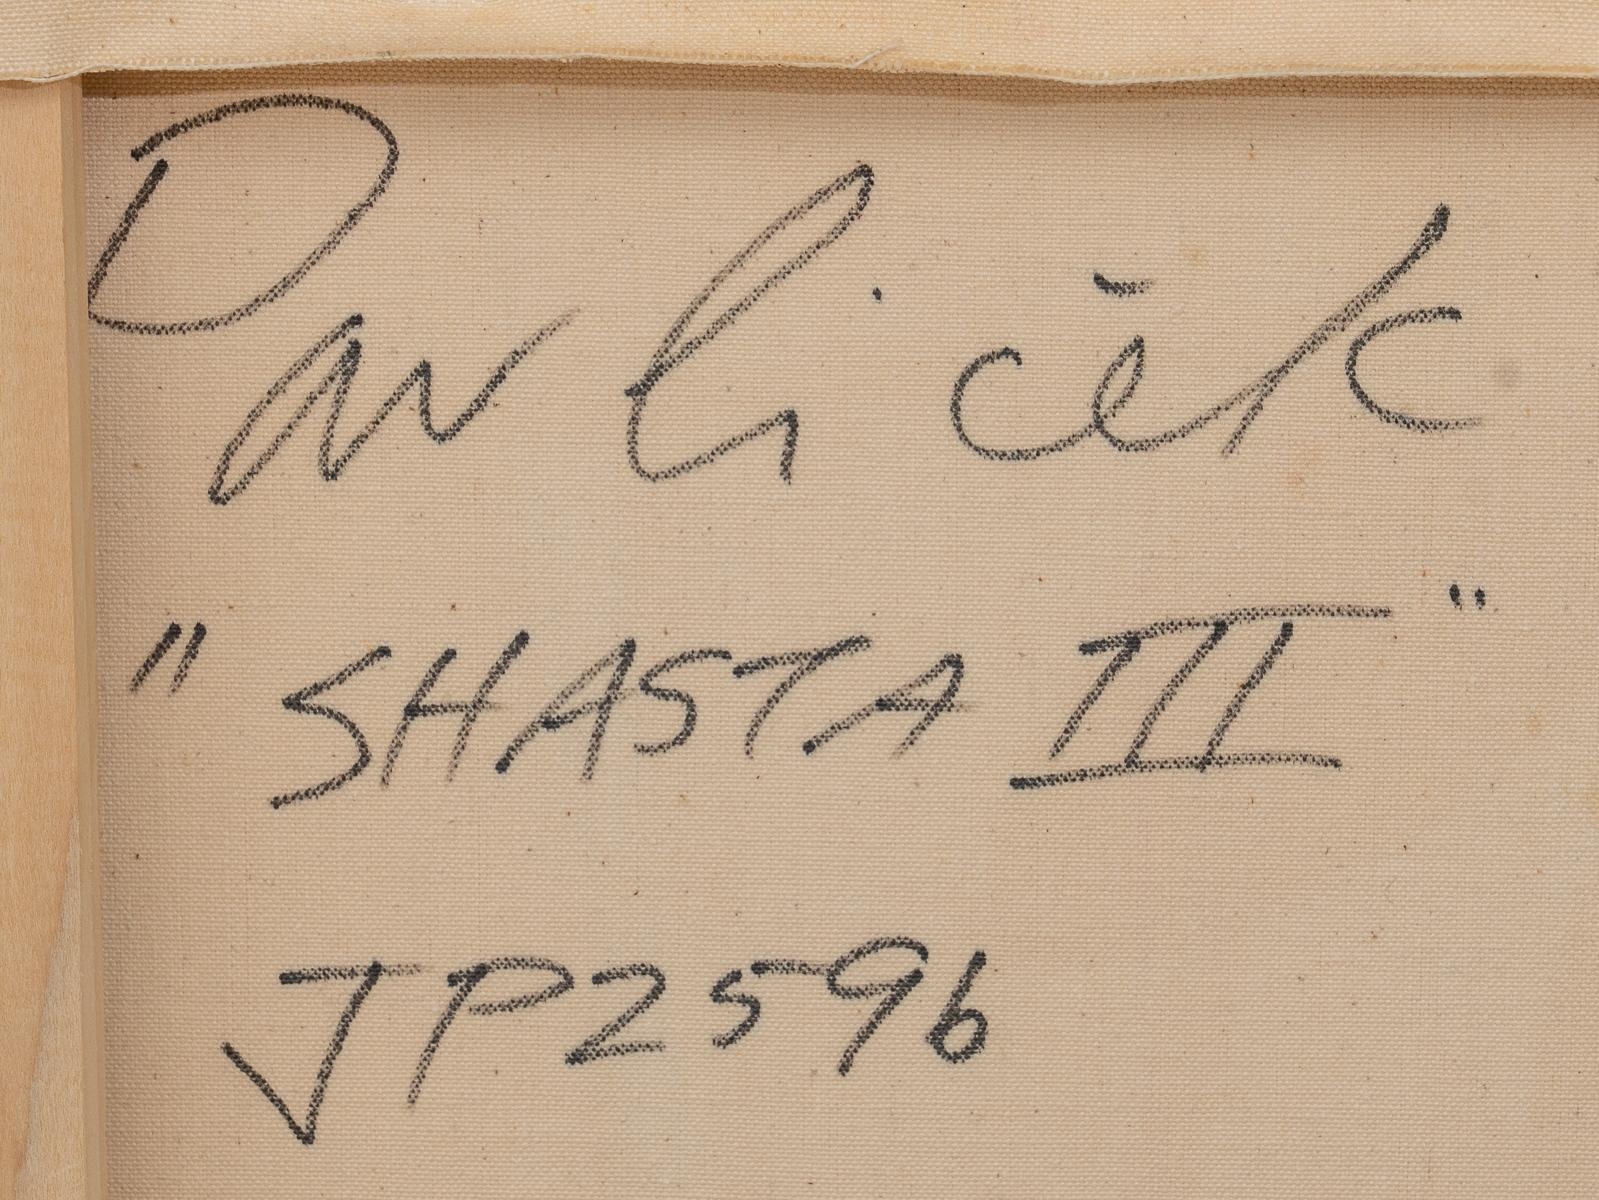 Pavlicěk
"SHASTA III"
JP2596